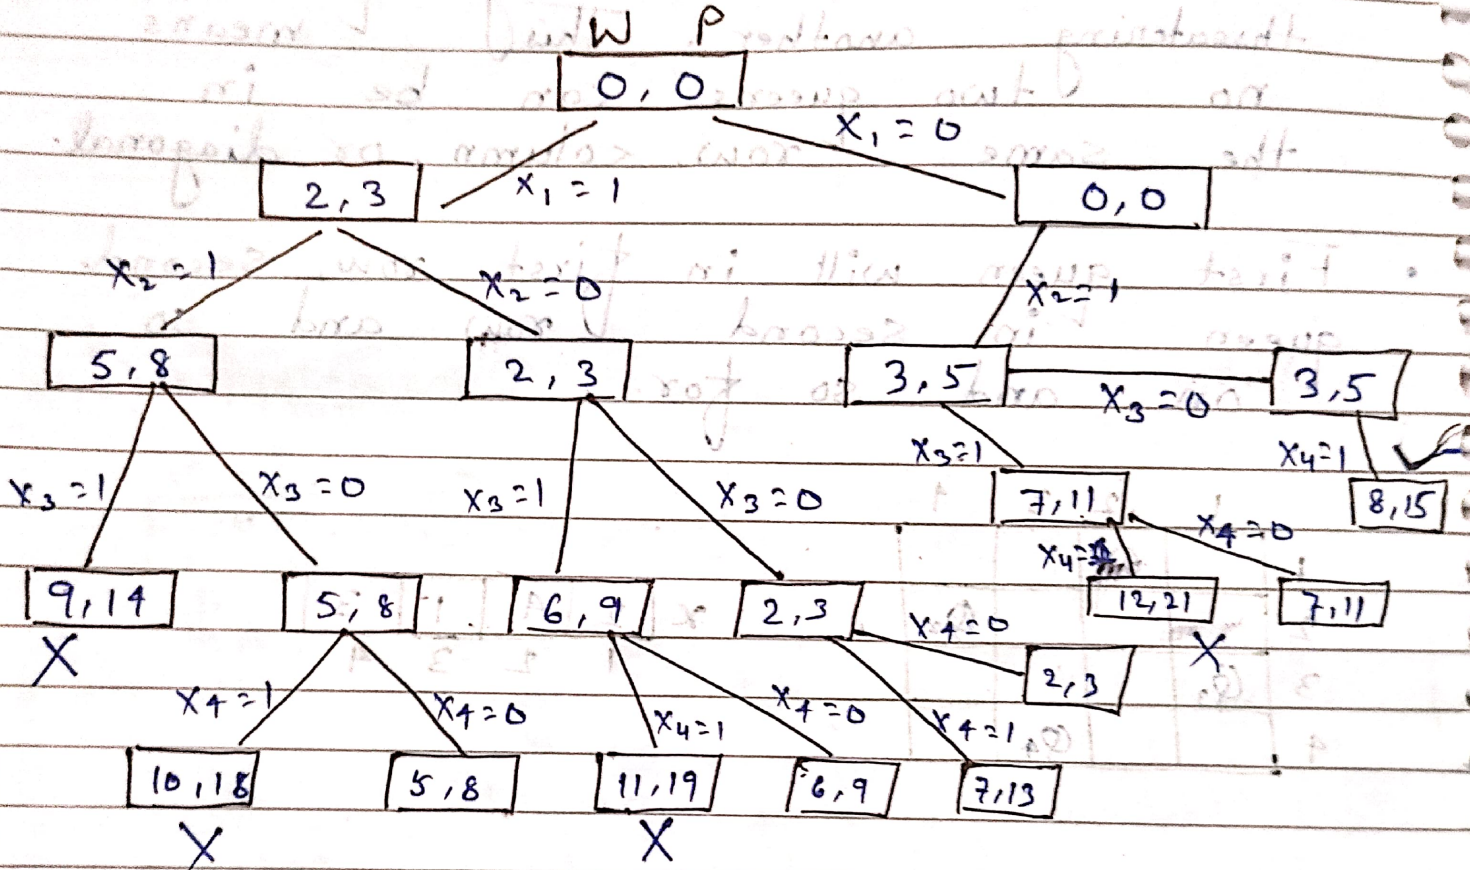 W P
0, 0
x₁ = 0
x₁ = 1
2, 3
0, 0
x₂ = 1
x₂ = 0
x₂ = 1
5, 8
2, 3
3, 5
3, 5
x₃ = 0
x₃ = 1
x₃ = 0
x₃ = 1
x₃ = 0
x₃ = 1
x₄ = 1
7, 11
8, 15
x₄ =
x₄ = 0
9, 14
5, 8
6, 9
2, 3
12, 21
7, 11
X
x₄ = 0
X
2, 3
x₄ = 1
x₄ = 0
x₄ = 1
x₄ = 0
x₄ = 1
10, 18
5, 8
11, 19
6, 9
7, 13
X
X